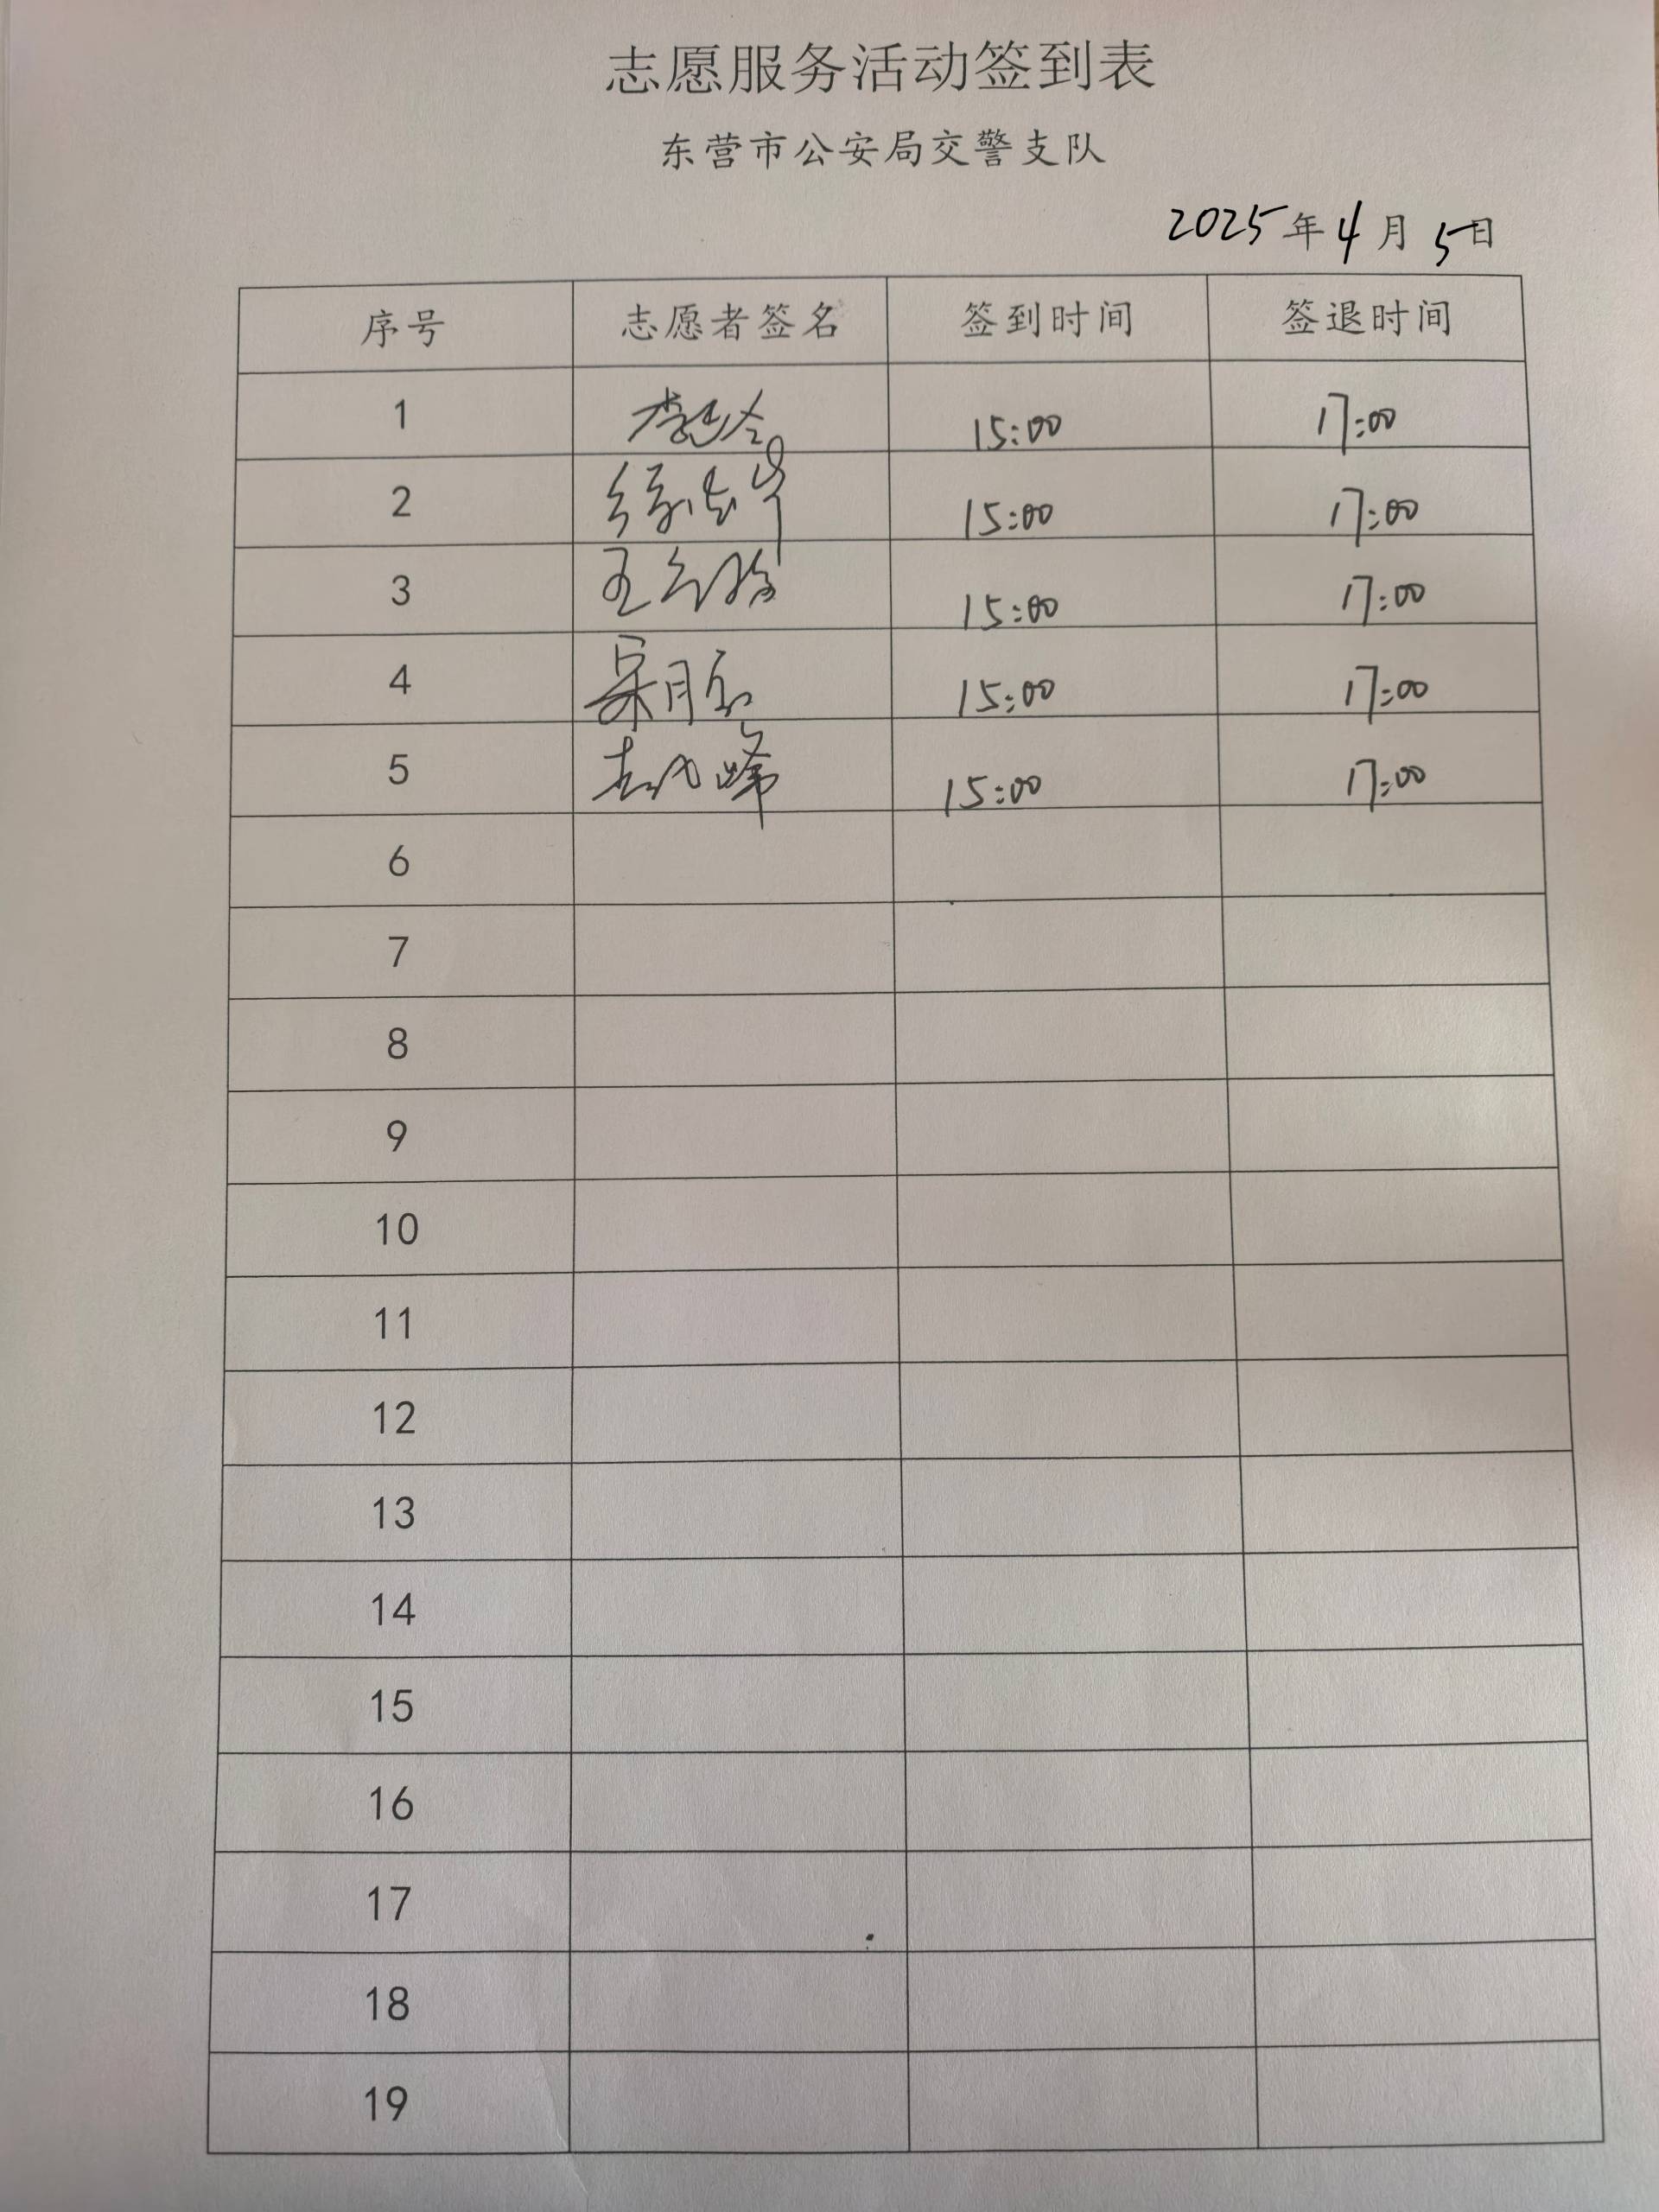 志愿服务活动签到表
东营市公安局交警支队
2025年4月5日
序号 志愿者签名 签到时间 签退时间
1 15:00 17:00
2 15:00 17:00
3 王 15:00 17:00
4 15:00 17:00
5 峰 15:00 17:00
6
7
8
9
10
11
12
13
14
15
16
17
18
19